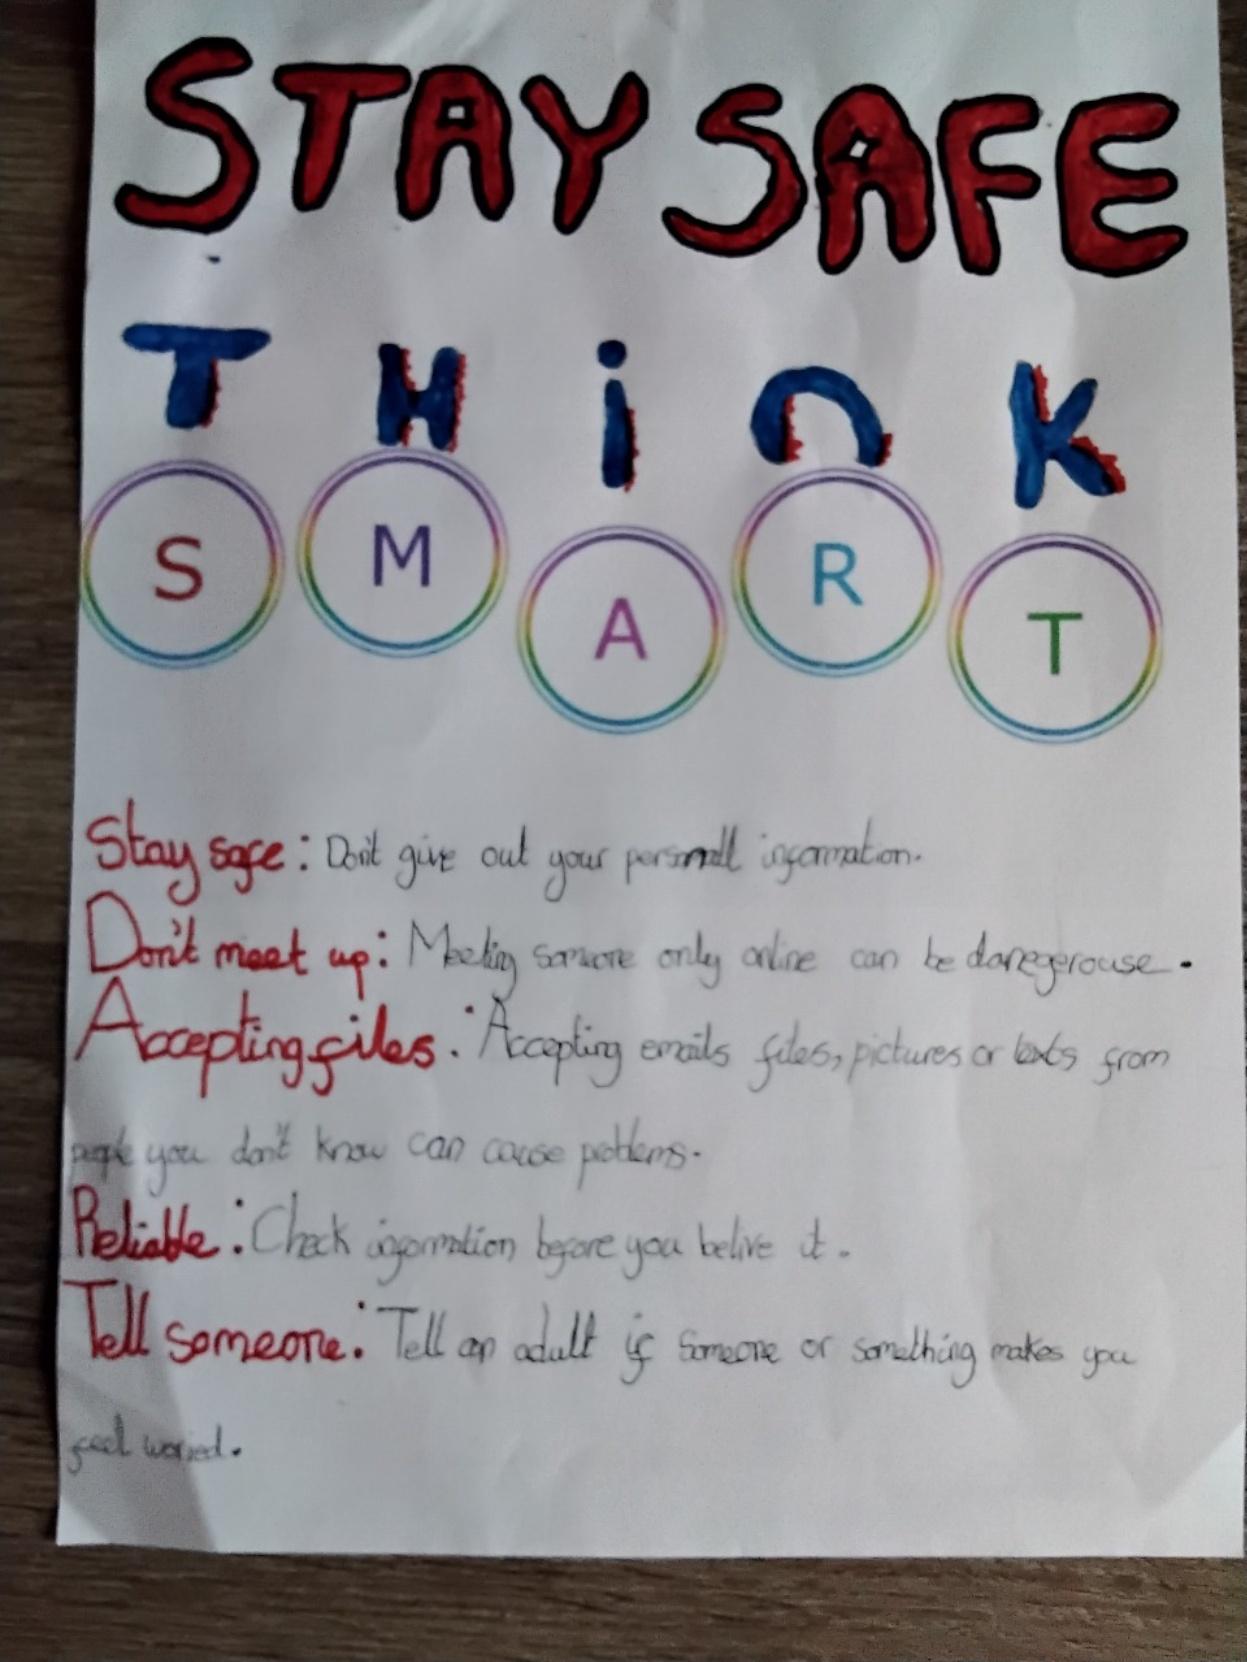 STAY SAFE
THiNK
S M A R T
Stay safe: Don't give out your personall information.
Don't meet up: Meeting someone only online can be daregerouse.
Accepting files: Accepting emails files, pictures or texts from
people you don't know can cause problems.
Reliable: Check information before you belive it.
Tell someone: Tell an adult if someone or something makes you
feel worried.